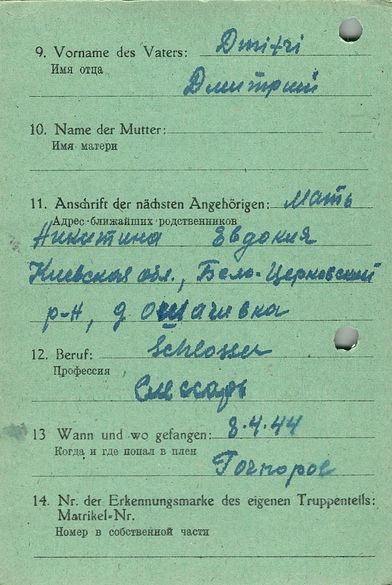 9. Vorname des Vaters: Dmitri
Имя отца
Дмитрий
10. Name der Mutter:
Имя матери
11. Anschrift der nächsten Angehörigen: Мать
Адрес ближайших родственников
Никитина Евдокия
Киевская обл., Бело-Церковский
р-н, д
12. Beruf: Schlosser
Профессия
Слессарь
13 Wann und wo gefangen: 8.4.44
Когда и где попал в плен
14. Nr. der Erkennungsmarke des eigenen Truppenteils:
Matrikel-Nr.
Номер в собственной части